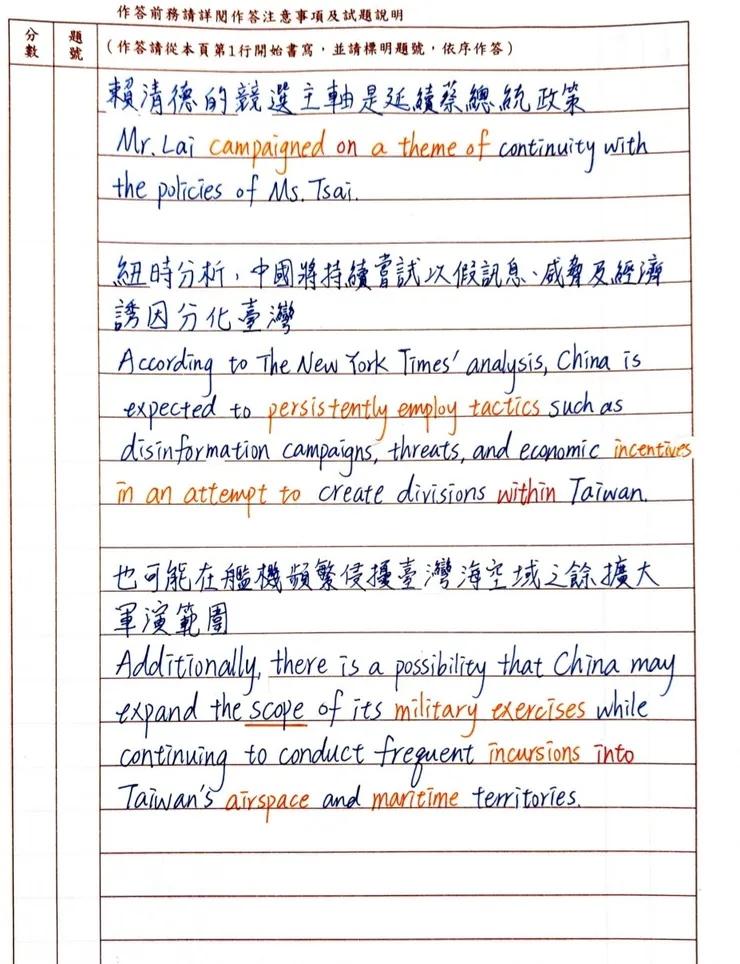 作答前務請詳閱作答注意事項及試題說明
分數
題號
(作答請從本頁第1行開始書寫,並請標明題號,依序作答)
賴清德的競選主軸是延續蔡總統政策
Mr. Lai campaigned on a theme of continuity with
the policies of Ms. Tsai.
紐時分析,中國將持續嘗試以假訊息、威脅及經濟
誘因分化臺灣
According to The New York Times' analysis, China is
expected to persistently employ tactics such as
disinformation campaigns, threats, and economic incentives
in an attempt to create divisions within Taiwan.
也可能在艦機頻繁侵擾臺灣海空域之餘擴大
軍演範圍
Additionally, there is a possibility that China may
expand the scope of its military exercises while
continuing to conduct frequent incursions into
Taiwan's airspace and maritime territories.